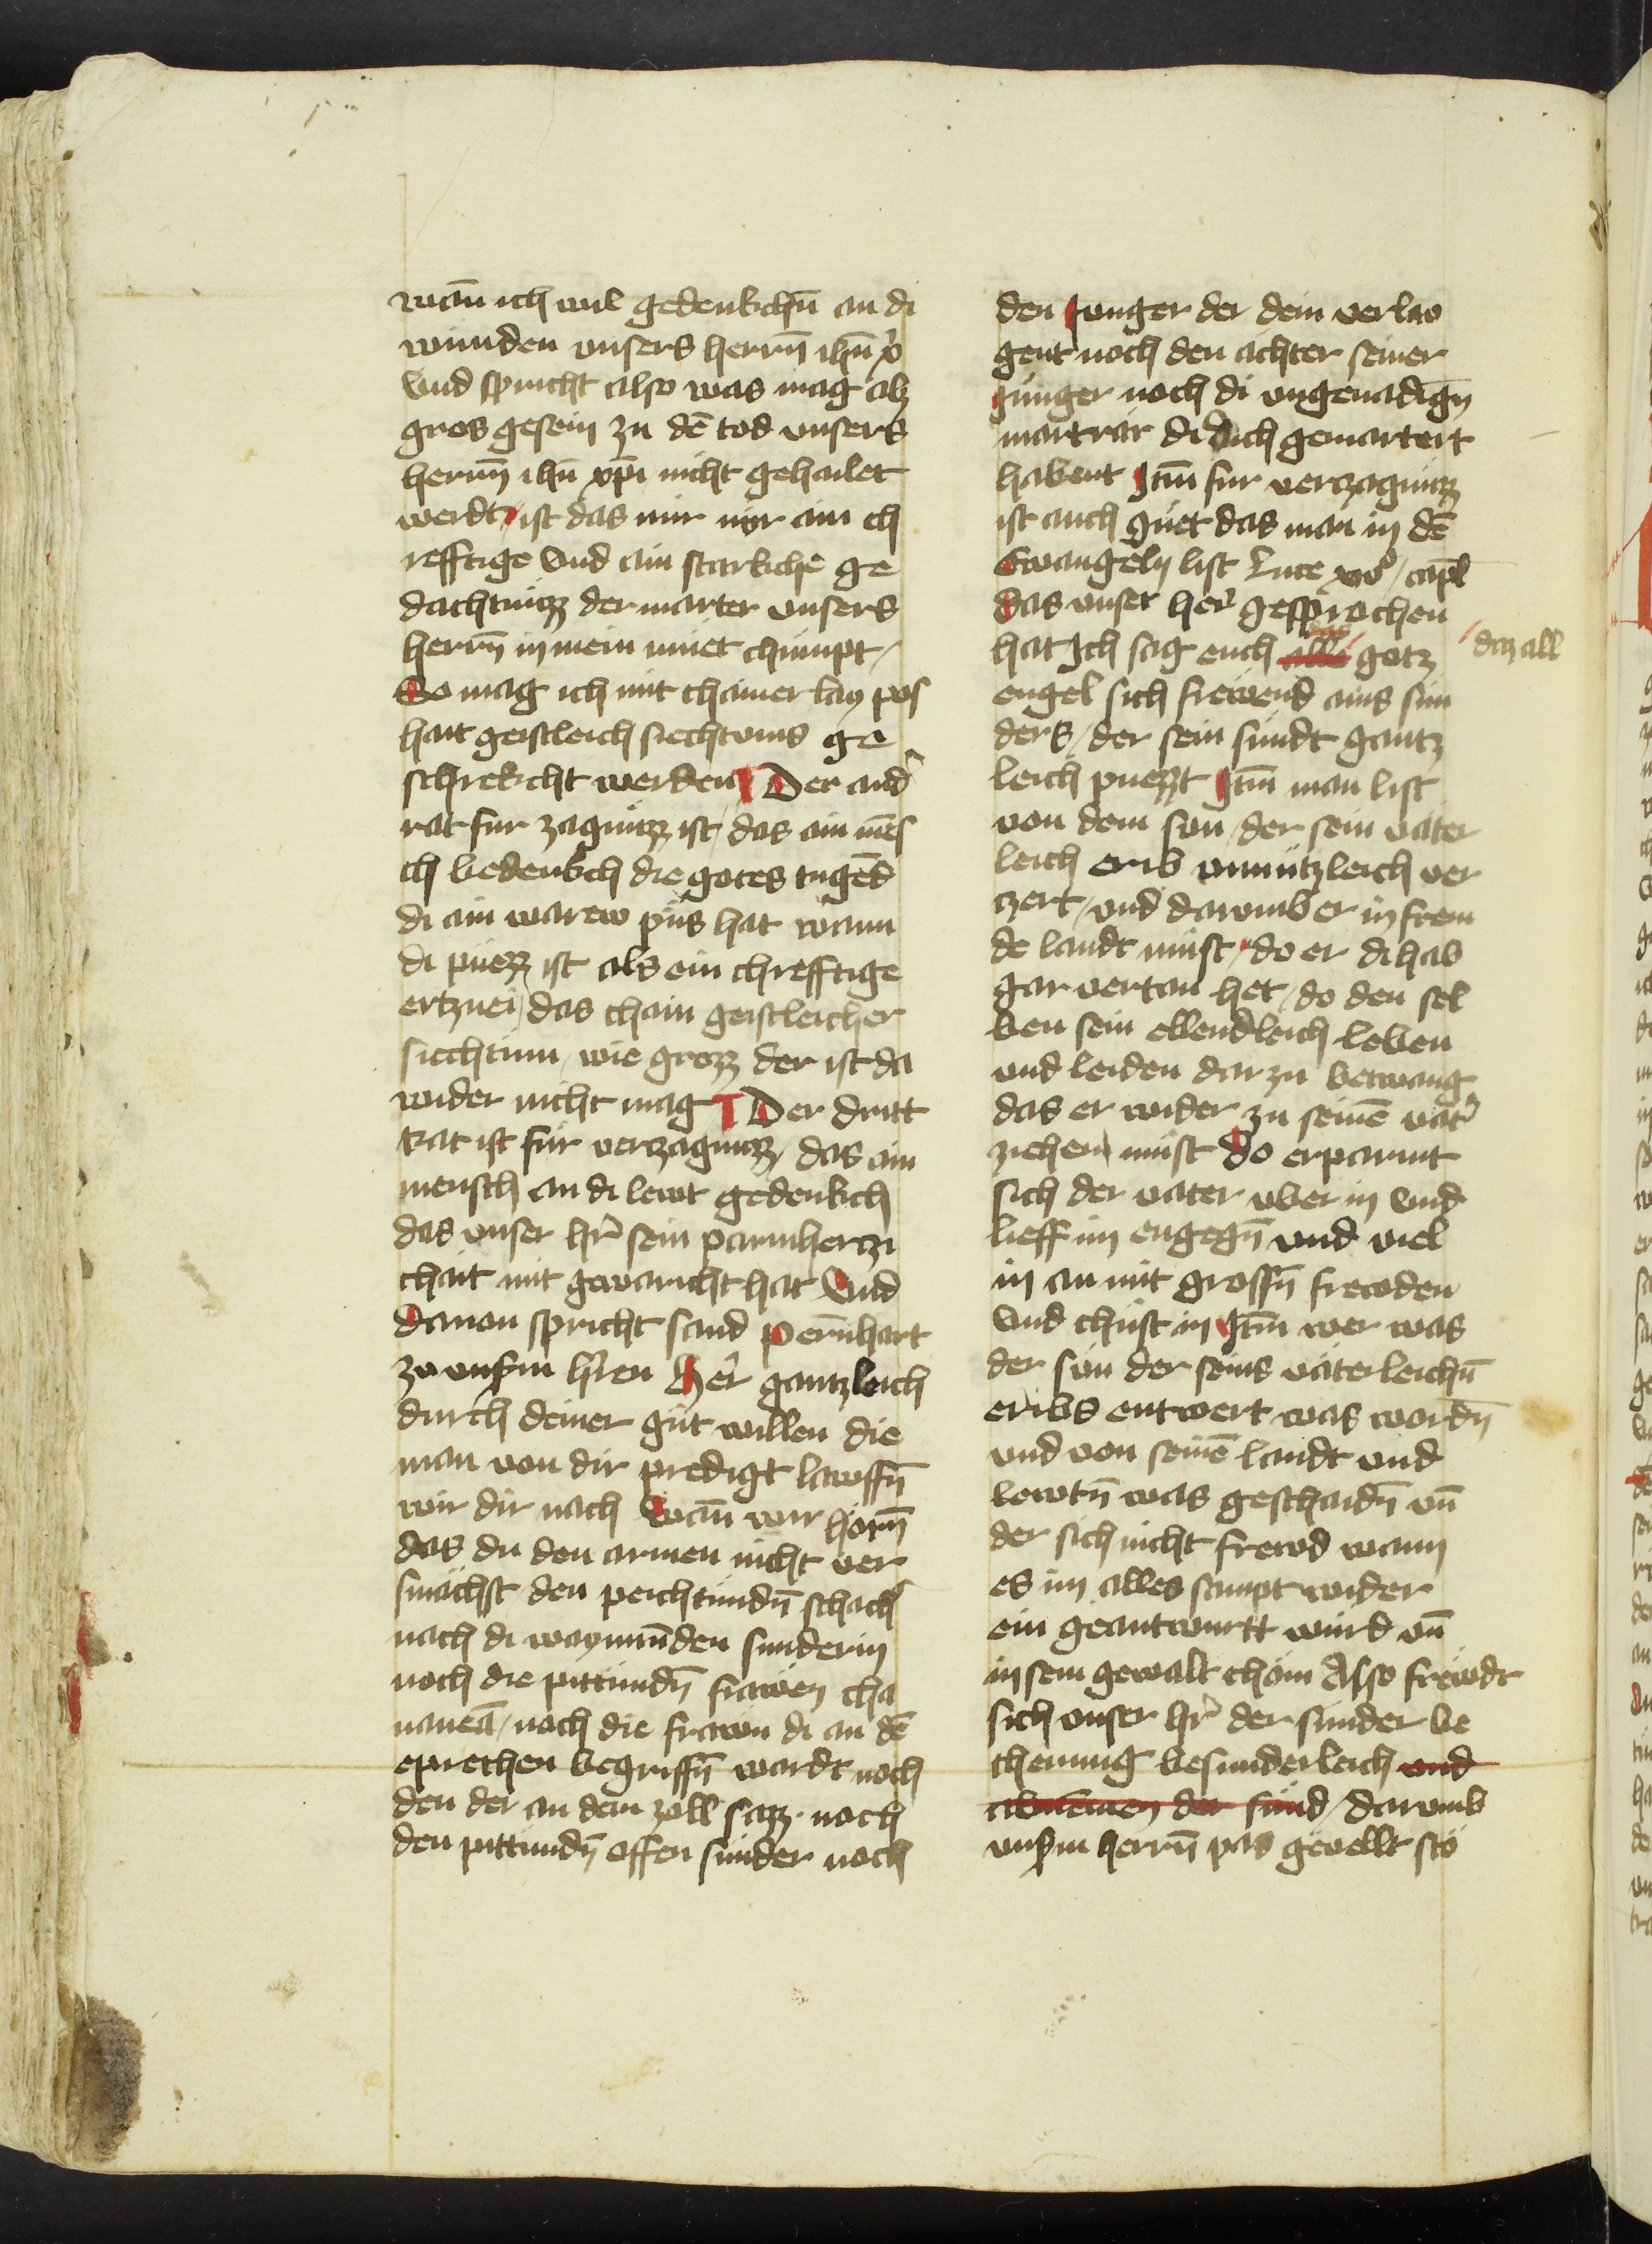 wañ ich wil gedenkchñ an di
wunden vnsers herrñ ihũ xp̃
Vnd spricht also was mag alz
gros gesein zu dē tod vnsers
herrñ ihũ xp̃i nicht gehailet
werdt / ist das mir nur ain ch
refftige Vnd ain starkche ge
dachtnüzz der marter vnsers
herrñ in mein müet chümpt /
So mag ich mit chainer lay pos
hait geistleich siechtums ge
schrekcht werden ¶ Der and̾
rat fur zagnüzz ist / das ain mēs
ch bedenkch die gotes tugēd
di ain warew püs hat wann
di püezz ist als ein chrefftige
ertznei / das chain geistleicher
siechtum / wie grozz der ist da
wider nicht mag ¶ Der dritt
Rat ist für verzagnüzz / das ain
mensch an di lewt gedenkch
das vnser hr̃ sein parmherczi
chait mit gewaricht hat Vnd
Dauon spricht sand Pernhart
zu vnsrm hr̃en Her̾ gantzleich
durch deiner güt willen die
man von dir predigt lawffñ
wir dir nach Wañ wir hörñ
das du den armen nicht ver
smächst den peichtundñ schach̾
nach di waynunden sunderin
noch die pittundñ frawen cha
naneā / noch die frawn di an dē
eprechen begriffñ wardt noch
den der an dem zoll sazz · noch
den pittundñ offen sünder noch
den Junger der dein verlaw
gent noch den achter seiner
Junger noch di vngenadigñ
martrar di dich gemartert
habent Itm̃ fur verczagnüzz
ist auch güet das man in dē
Ewangely list Luce xvº / capl̃
Das vnser her̾ gesprochen
hat Ich sag euch alle gotz
daz all
engel sich frewend ains sun
ders / der sein sündt gantz
leich puezzt Itm̃ man list
von dem sun / der sein väter
leich erib vnnützleich ver
zert / vnd darumb er in frem
de landt müst / do er di hab
gar vertan het / do den sel
ben sein ellendleich leben
vnd leiden dar zu betwang
das er wider zu seinē vat̾
ziehen müst Do erparmt
sich der vater vber in Vnd
lieff im engegñ vnd viel
in an mit grossñ frewden
Vnd chüst in Itm̃ wer was
der sun der seins väterleichñ
eribs entwert was wordñ
vnd von seinē landt vnd
lewtñ was geschaidñ vñ
der sich nicht frewd wann
es im alles sampt wider
ein geantwurtt wurd vñ
in sein gewalt chöm Also frewdt
sich vnser hr̃ der sunder be
cherung besunderleich vnd
abnemen der sund / darumb
vnsrm herrñ pas geuellt stö